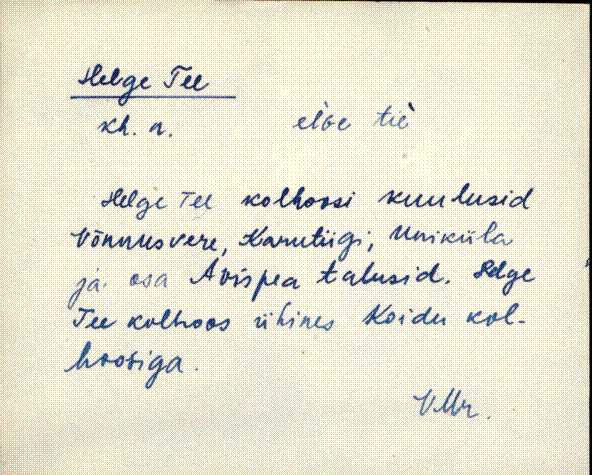 Helge Tee
kh. n. elGe tiè
Helge Tee kolhoosi kuulusid
Võnnusvere, Kanutiigi, Uniküla
ja osa Avispea talusid. Helge
Tee kolhoos ühines Koidu kol-
hoosiga.
VMr.